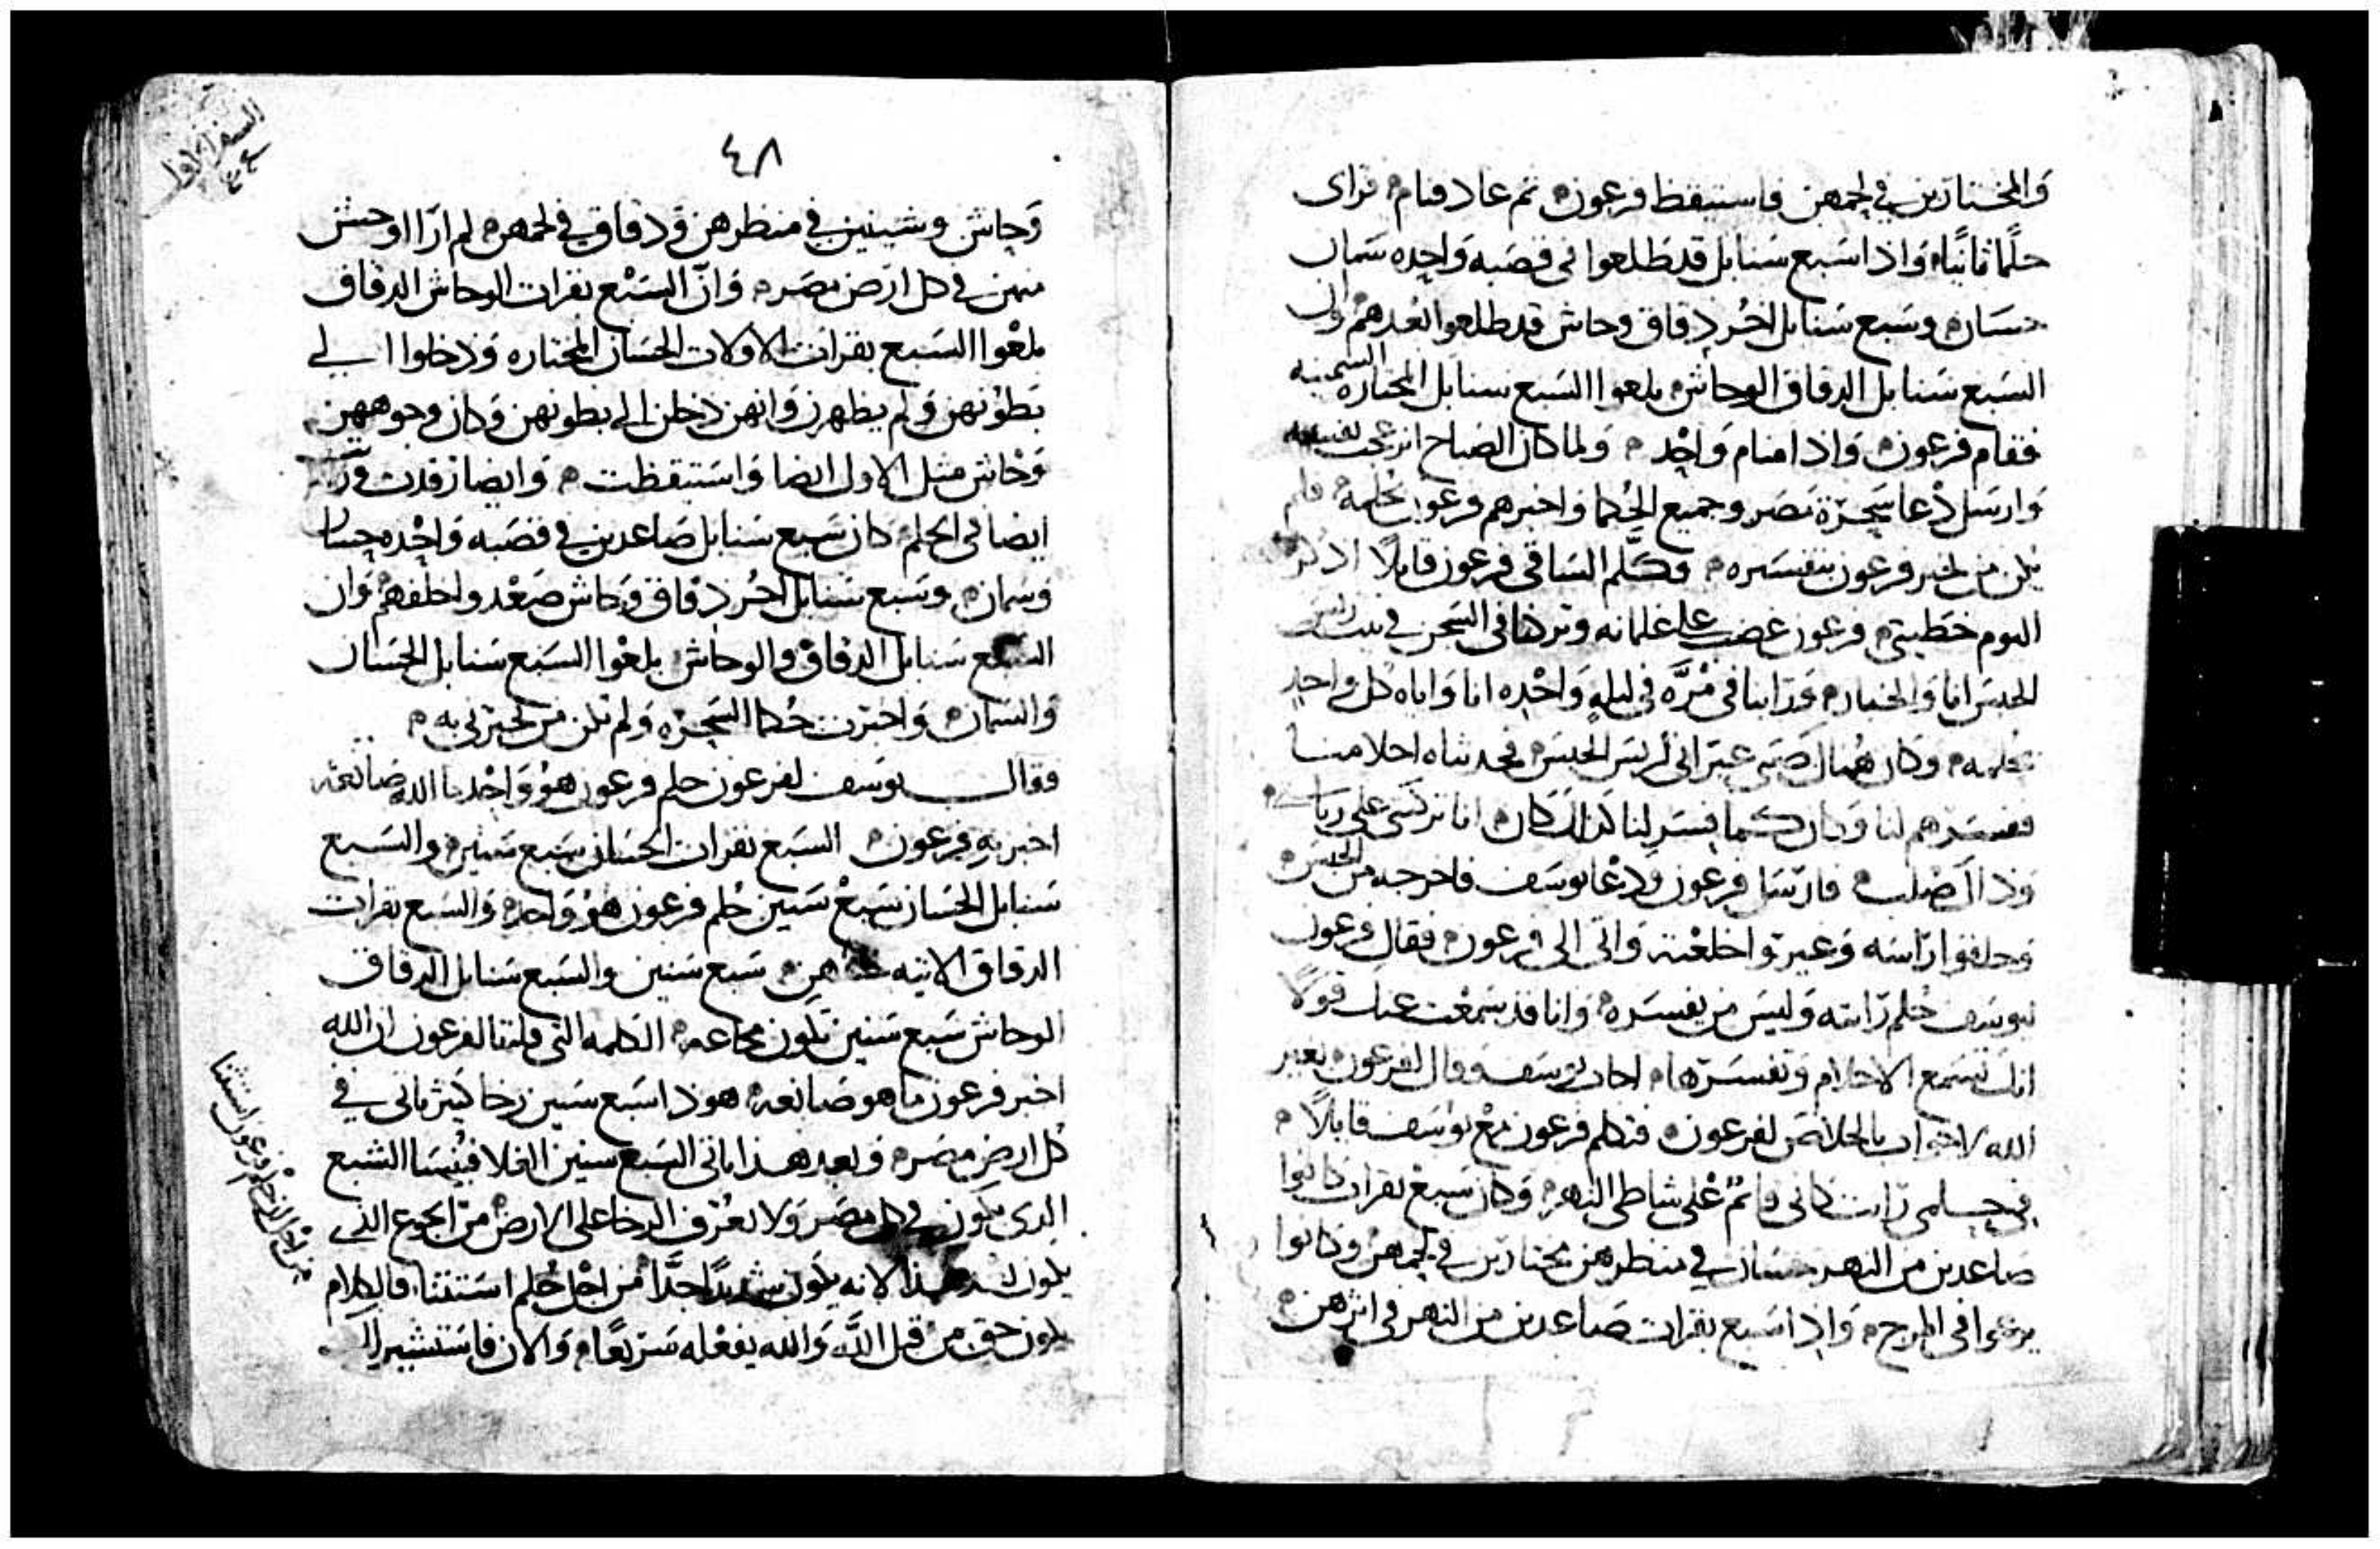 والمختارين في لحمهن فاستيقظ فرعون ثم عاد فنام فراى
حلمًا ثانيًا واذا سبع سنابل قد طلعوا في قصبه واحده سمان
حسان وسبع سنابل اخر دقاق وحاش قد طلعوا بعدهم وان
السبع سنابل الدقاق الوحاش بلعوا السبع سنابل المختاره السمينه
فقام فرعون واذا منام واحد ولما كان الصباح انزعجت نفسه
وارسل دعا سحرة مصر وجميع الحكما واخبرهم فرعون بحلمه فلم
يكن من يخبر فرعون بتفسيره فكلم الساقي فرعون قايلًا اذكر
اليوم خطيتي فرعون غضب على غلمانه وتركنا في السجن في بيت
الحبس انا والخباز وراينا في مره في ليله واحده انا واياه كل واحد
بحلمه وكان هناك صبي عبراني لريس الحبس فحدثناه احلامنا
ففسرهم لنا وكان كما فسر لنا كذلك كان انا تركني على
وذاك صلب فارسل فرعون ودعا يوسف فاخرجه من الحبس
وحلقوا راسه وغيرو اخلعته واتى الى فرعون فقال فرعون
ليوسف حلم رايته وليس من يفسره وانا قد سمعت عنك قولًا
انك تسمع الاحلام وتفسرها اجاب يوسف وقال لفرعون بغير
الله لا جواب بالخلاص لفرعون فتكلم فرعون مع يوسف قايلًا
في حلمي رايت كاني قايم على شاطى النهر وكان سبع بقرات كانوا
صاعدين من النهر حسان في منظرهن مختارين في لحمهن وكانوا
يرعوا في المرج واذا سبع بقرات صاعدين من النهر في اثرهن
السفر الاول
٤٨
وحاش وشينين في منظرهن ودقاق في لحمهن لم ارا اوحش
منهن في كل ارض مصر وان السبع بقرات الوحاش الدقاق
بلعوا السبع بقرات الاولات الحسان المختاره ودخلوا الى
بطونهن ولم يظهرن وانهن دخلن الى بطونهن وكان وجوههن
وحاش مثل الاول ايضا واستيقظت وايضا رقدت
ايضا في الحلم كان سبع سنابل صاعدين في قصبه واحده حسان
وسمان وسبع سنابل اخر دقاق وحاش صعدوا خلفهم وان
السبع سنابل الدقاق والوحاش بلعوا السبع سنابل الحسان
والسمان واخبرت حكما السحره ولم يكن من يخبرني به
فقال يوسف لفرعون حلم فرعون هو واحد ما الله صانعه
اخبر به فرعون السبع بقرات الحسان سبع سنين والسبع
سنابل الحسان سبع سنين حلم فرعون هو واحد والسبع بقرات
الدقاق الاتيه هن سبع سنين والسبع سنابل الدقاق
الوحاش سبع سنين تكون مجاعه الكلمه التي قلتها لفرعون ان الله
اخبر فرعون ما هو صانعه هوذا سبع سنين رخا كثير ياتي في
كل ارض مصر وبعد هذا ياتي السبع سنين الغلا فينسا الشبع
الدي يكون في كل مصر ولا يعرف الرخا على الارض من الجوع الذي
يكون هذا لانه يكون شديدًا جدًا من اجل حلم استثنا فالكلام
يكون حق من قبل الله والله يفعله سريعًا والان فاستشير لك
من اجل ان حلم فرعون استثنا